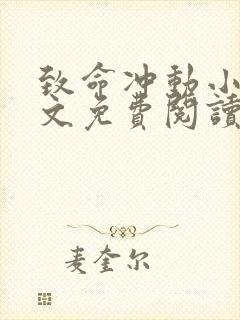 致命冲動小
文免費閱讀
麦奎尔